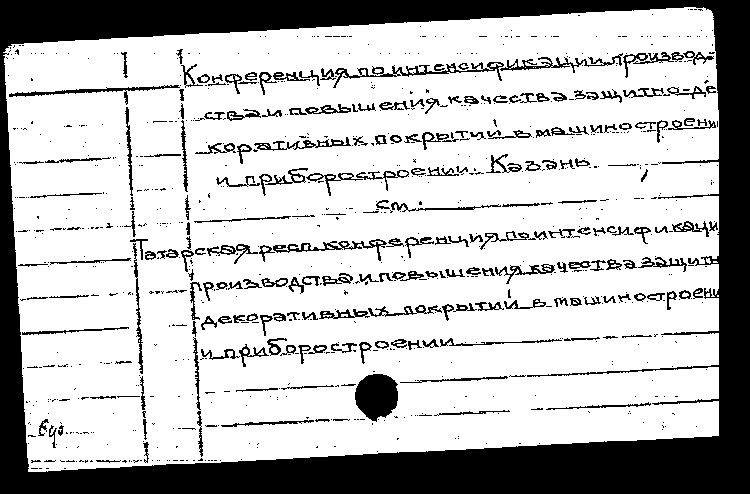 Конференция по интенсификации производ-
ства и повышения качества защитно-де
коративных покрытий в машиностроени
и приборостроении. Казань.
см.:
Татарская респ. конференция по интенсификаци
производства и повышения качества защитн
декоративных покрытий в машиностроени
и приборостроении